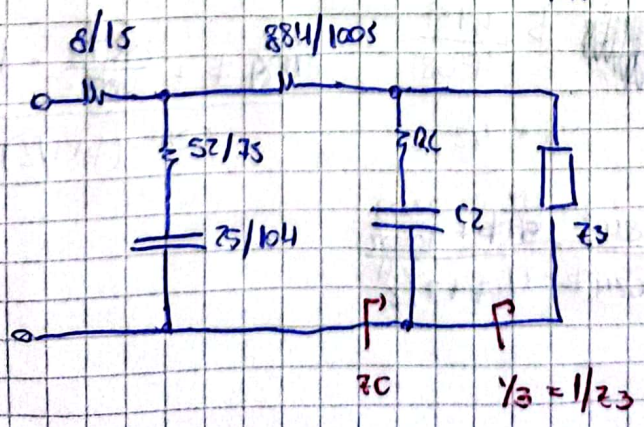 8/15
884/1003
52/75
RC
25/104
C2
Z3
ZC
Y3 = 1/Z3